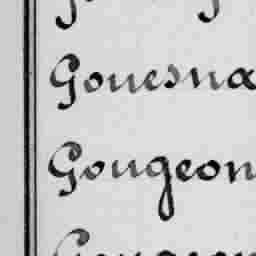 Gouesna
Gougeon